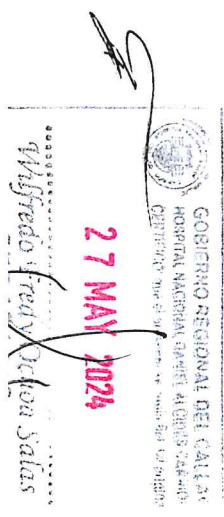 GOBIERNO REGIONAL DEL CALLAO
HOSPITAL NACIONAL DANIEL A. CARRION
CERTIFICO que el
27 MAY 2024
Wilfredo Fredy Ochoa Salas